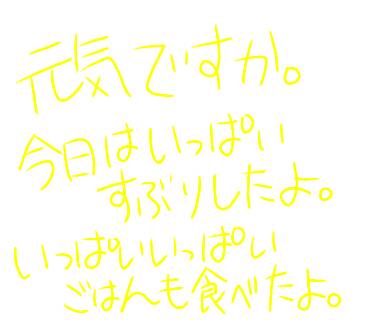 元気ですか。
今日はいっぱい
すぶりしたよ。
いっぱいいっぱい
ごはんも食べたよ。